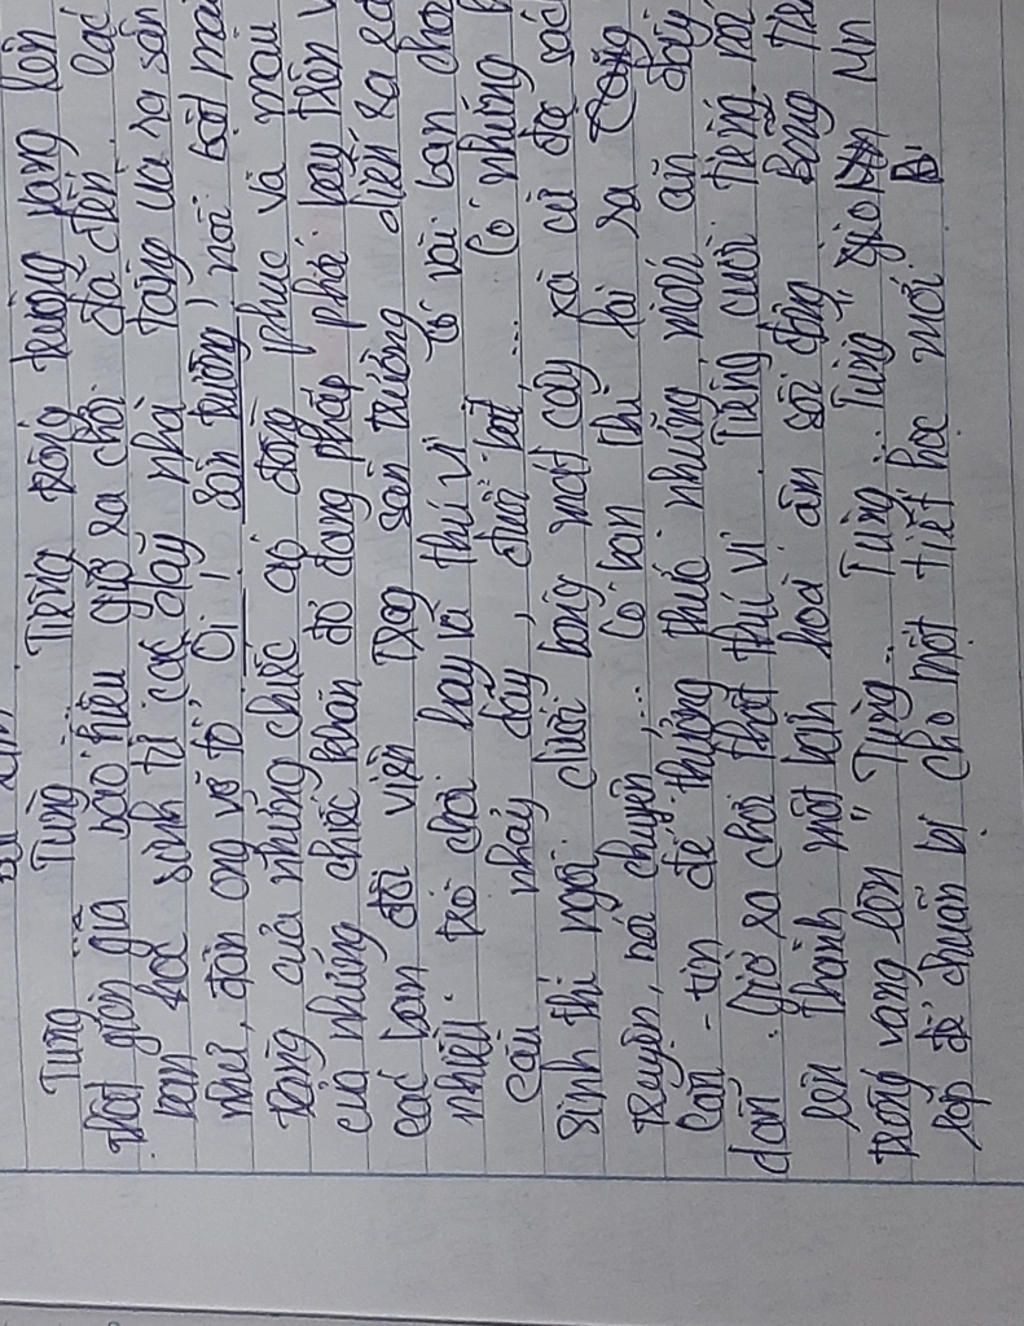 Tùng ... Tùng ... Tùng ... Tiếng trống trường vang lên
thật giòn giã báo hiệu giờ ra chơi đã đến. các
bạn học sinh từ các dãy nhà tầng ùa ra sân
như đàn ong vỡ tổ. Ôi! Sân trường nổi bật màu
trắng của những chiếc áo đồng phục và màu
của những chiếc khăn đỏ đang pháp phá bay trên v
các bạn đội viên. Trog sân trường diễn ra
nhiều trò chơi hay và thú vị. Có vài bạn chơi
cầu, nhảy dây, đuổi bắt,... Có những
sinh thì ngồi dưới bóng mát cây xà cừ đọc sác
truyện, nói chuyện,... Có bạn thì lại ra
căn-tin để thưởng thức những món ăn đầy
dẫn. Giờ ra chơi thật thú vị. Tiếng cười tiếng nói
lên thành một bản hoà ân sôi động. Bỗng
trống vang lên " Tùng... Tùng... Tùng" giờ
lớp để chuẩn bị cho một tiết học mới